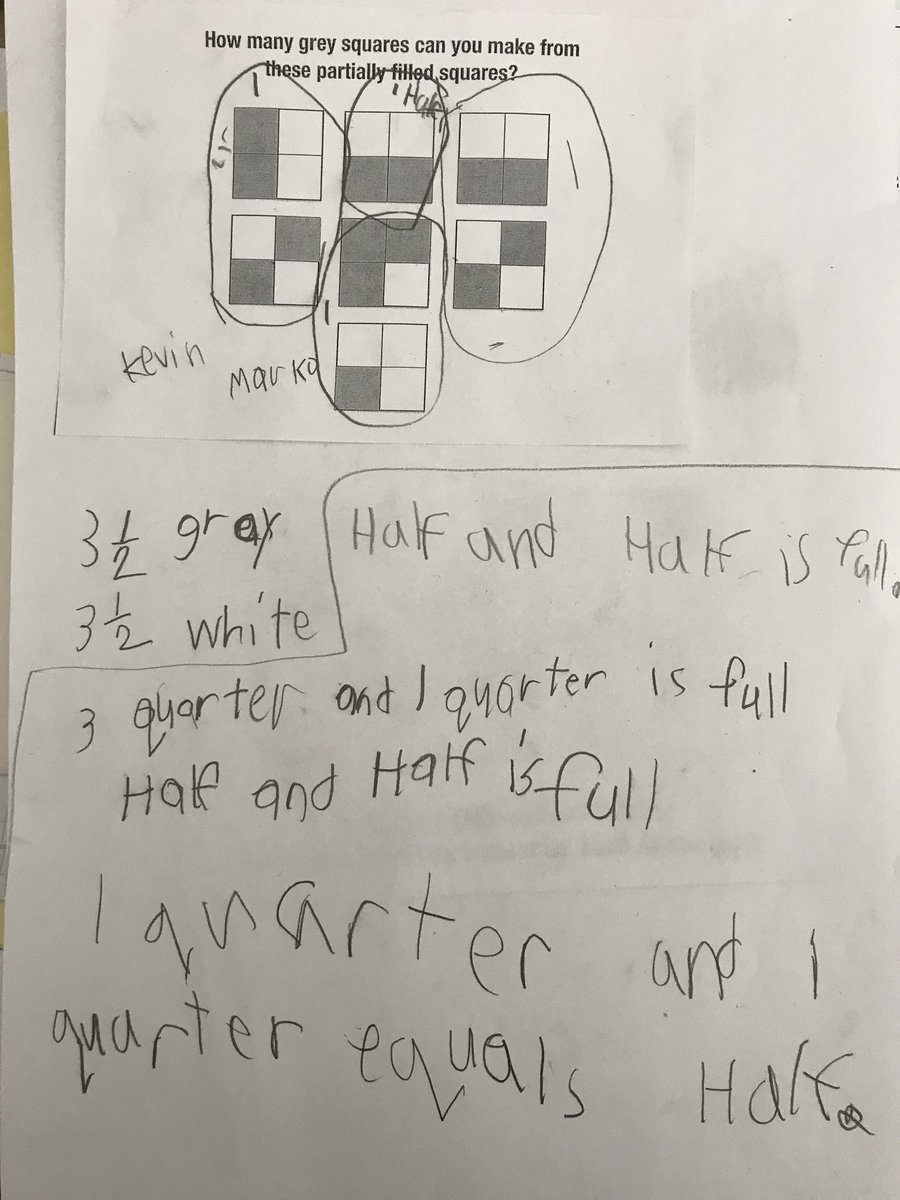 How many grey squares can you make from
these partially filled squares?
1
1 Half
1/2
1
1
Kevin
Marko
3 1/2 gray
3 1/2 white
Half and Half is full.
3 quarter and 1 quarter is full
Half and Half is full
1 quarter and 1
quarter equals Half.